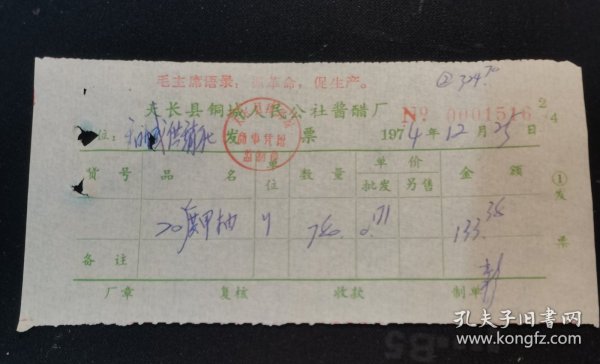 毛主席语录：抓革命，促生产。
② 324.70
天长县铜城人民公社酱醋厂
No 0001516
单位：铜城供销社 发 票 1974年12月25日
货号 品名 单位 数量 单价 金额
批发 另售
20度甲抽 〃 780. 0.171 133.38
①发票
备注
厂章 复核 收款 制单
孔夫子旧书网
www.kongfz.com